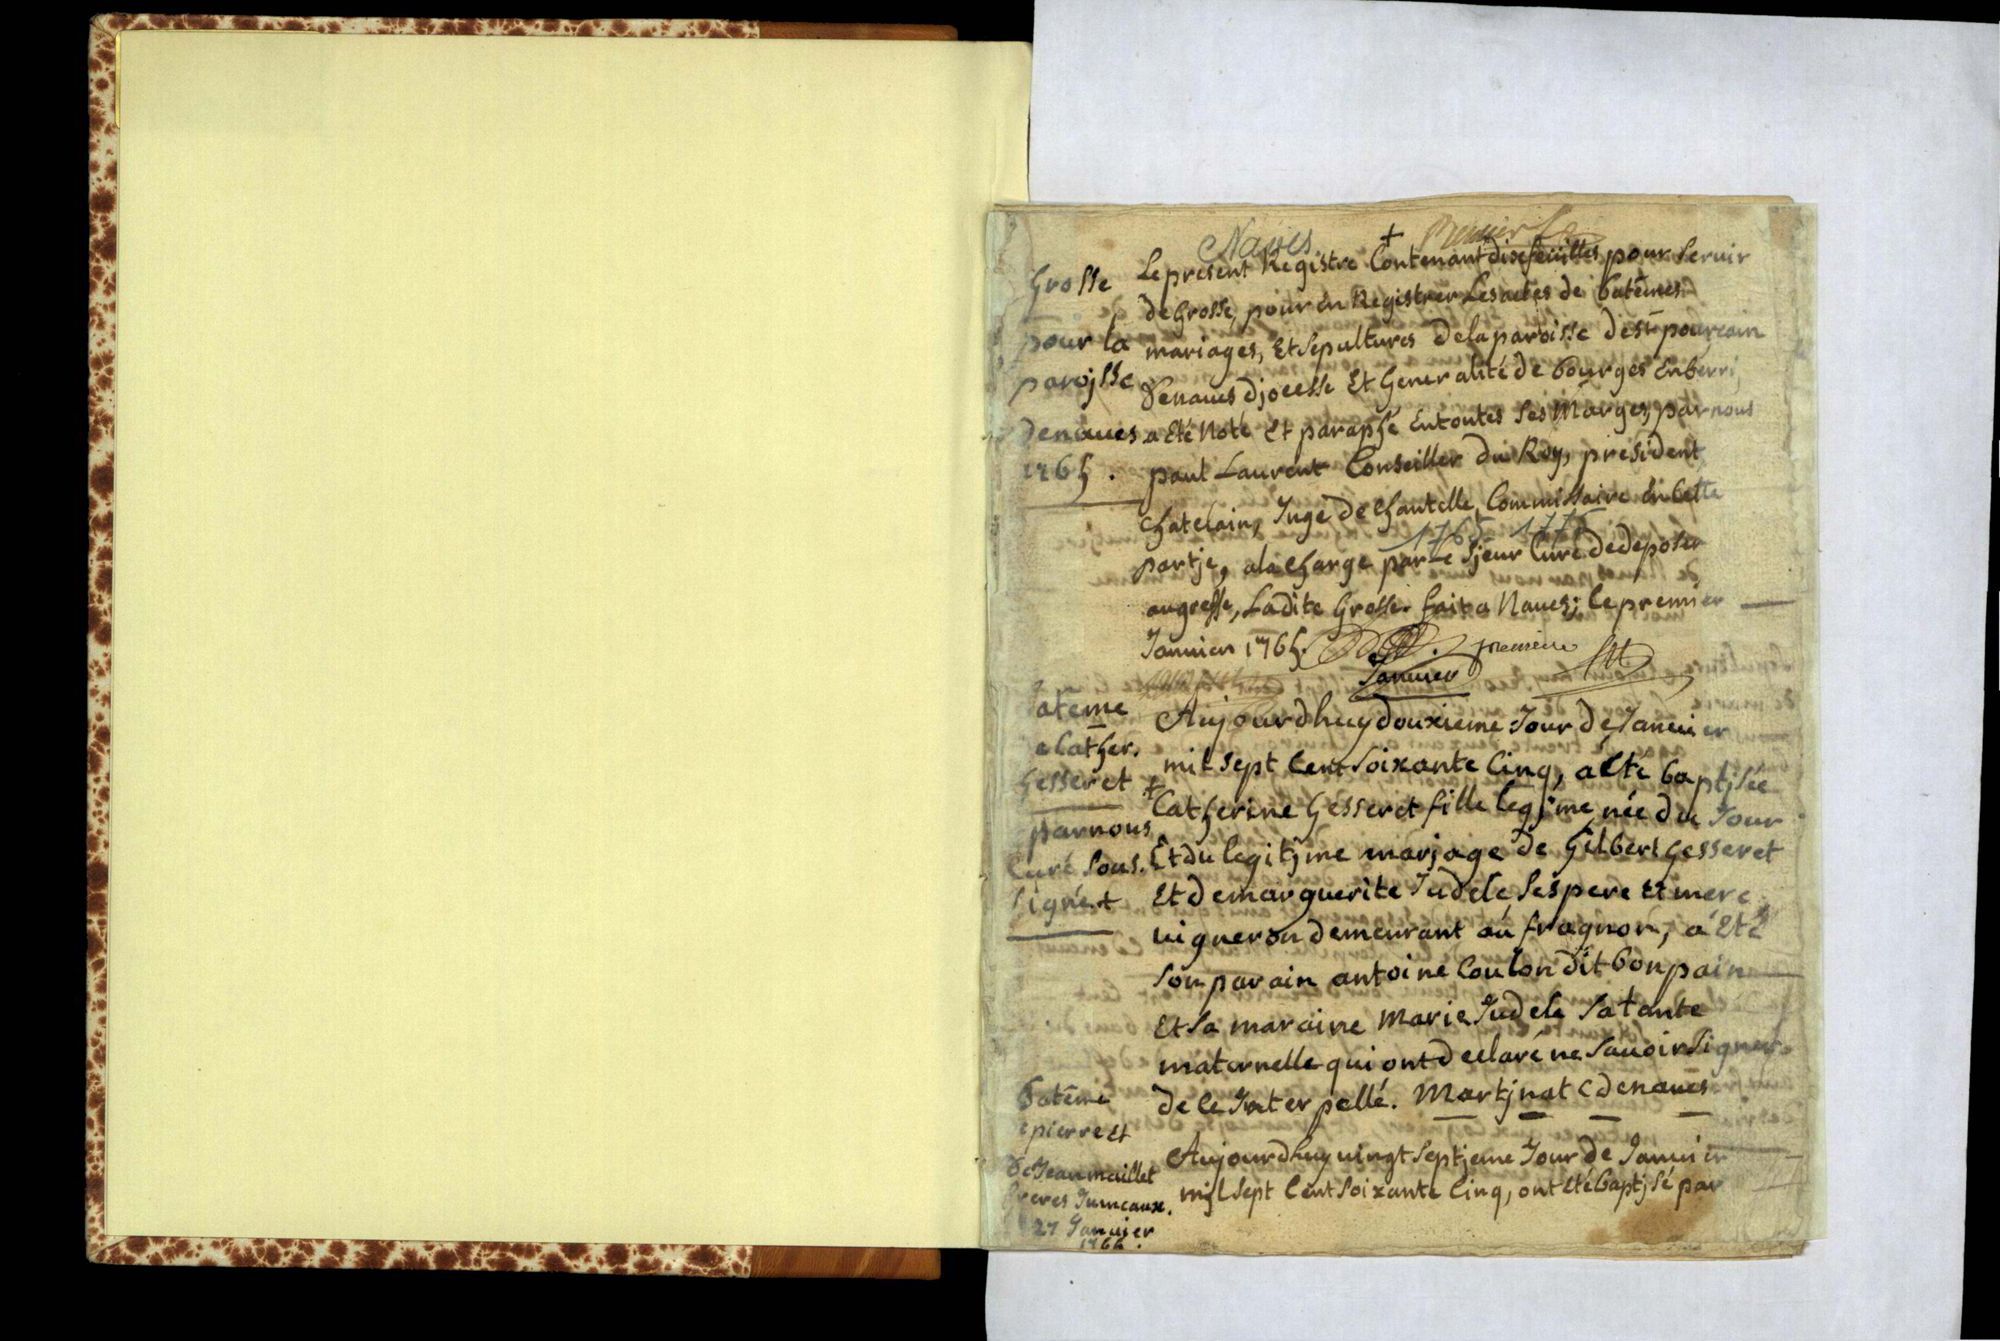 Naves
+ premier
Grosse
pour la
parojsse
denaves
1765.
Le present Registre Contenant dix feuilles, pour servir
de Grosse, pour en Registrer Les actes de batêmes
mariages, Et sepultures de la paroisse de st pourcain
Denaves djocesse Et Generalité de bourges En berri,
a Eté Noté Et paraphé En toutes ses Marges, par nous
paul Laurent Conseiller du Roy, president
chatelain, Juge de chantelle, Commissaire En Cette
1765 - 1775
partje, a la charge par Le sjeur Curé de deposer
au greffe, Ladite Grosse. fait a Naves; le premier
Januier 1765. premiere
Januier
batême
e Cather.
Gesseret
par nous
Curé sous.
signé +
Aujourdhuy douxieme Jour de Januier
mil sept Cent soixante Cinq, a Eté baptjsée
+ Catherine Gesseret fille legjme née du Jour
Et du legitjme marjage de Gilbert Gesseret
Et de marguerite Judele ses pere Et mere
vigneron demeurant au fragnon, a Eté
son parain antoine Coulon dit bonpain
Et sa maraine Marie Judele sa tante
maternelle qui ont declaré ne sauoir signer
de ce Interpellé. Martjnat C denaves
batême
e pierre Et
De Jean maillet
freres Jumeaux.
27 Januier
Aujourdhuy vingt septjeme Jour de Januier
mjl sept Cent soixante Cinq, ont Eté baptjsé par